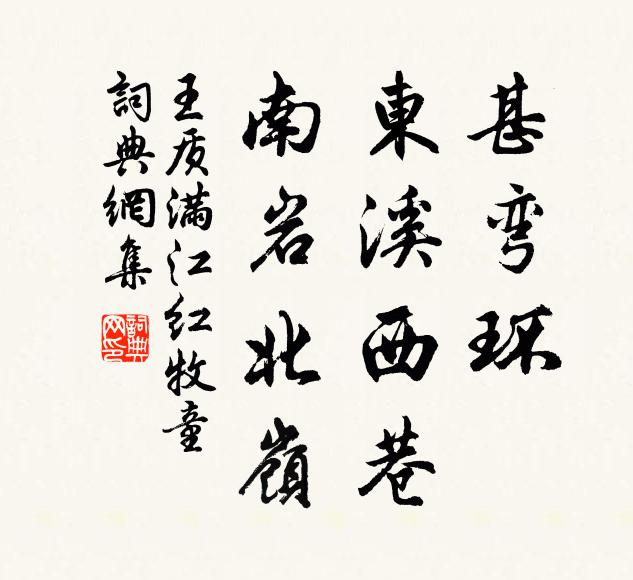 甚弯环
東溪西巷
南岩北嶺
王质满江红牧童
詞典網集
詞典网印